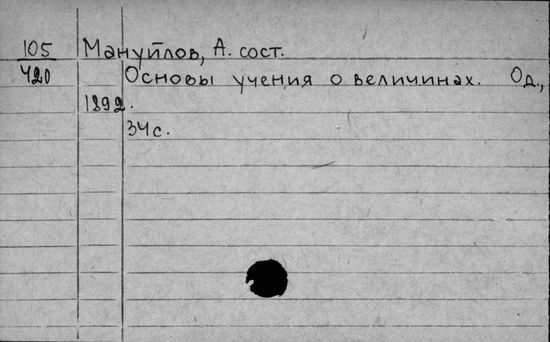 105 Мануйлов, А. сост.
420 Основы учения о величинах. Од.,
1892.
34 с.